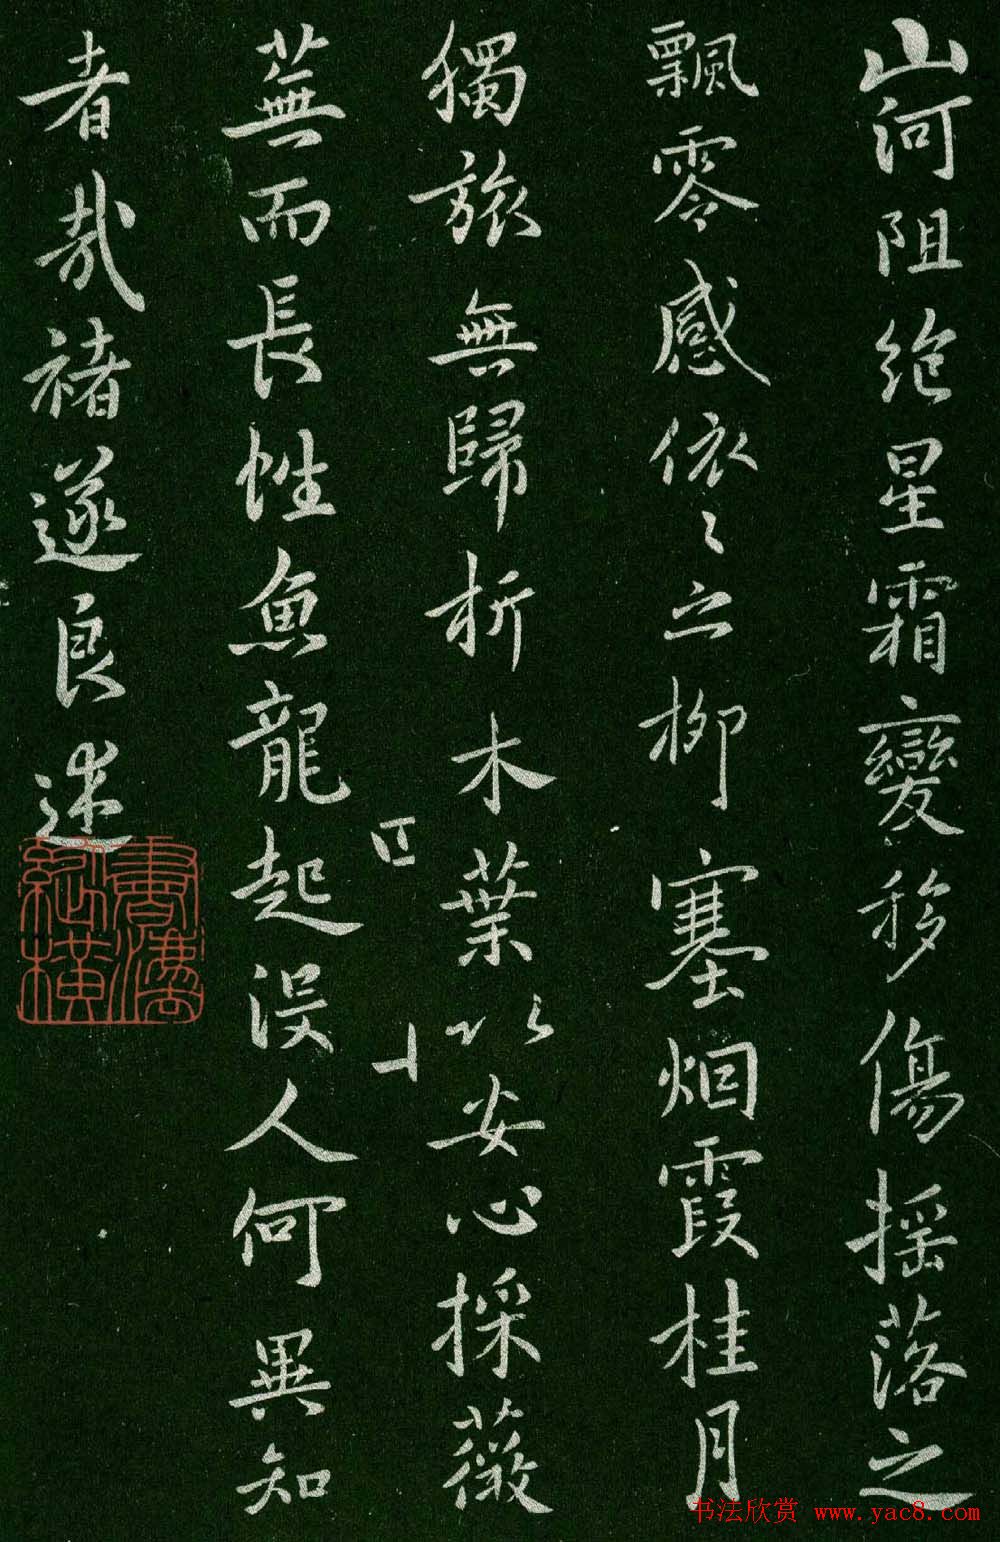 山河阻绝星霜變移傷摇落之
飄零感依〻之柳塞烟霞桂月
獨旅無歸折木葉以安心採薇
蕪而長性魚龍起没人何異知
者哉褚遂良述
書法欣赏 www.yac8.com